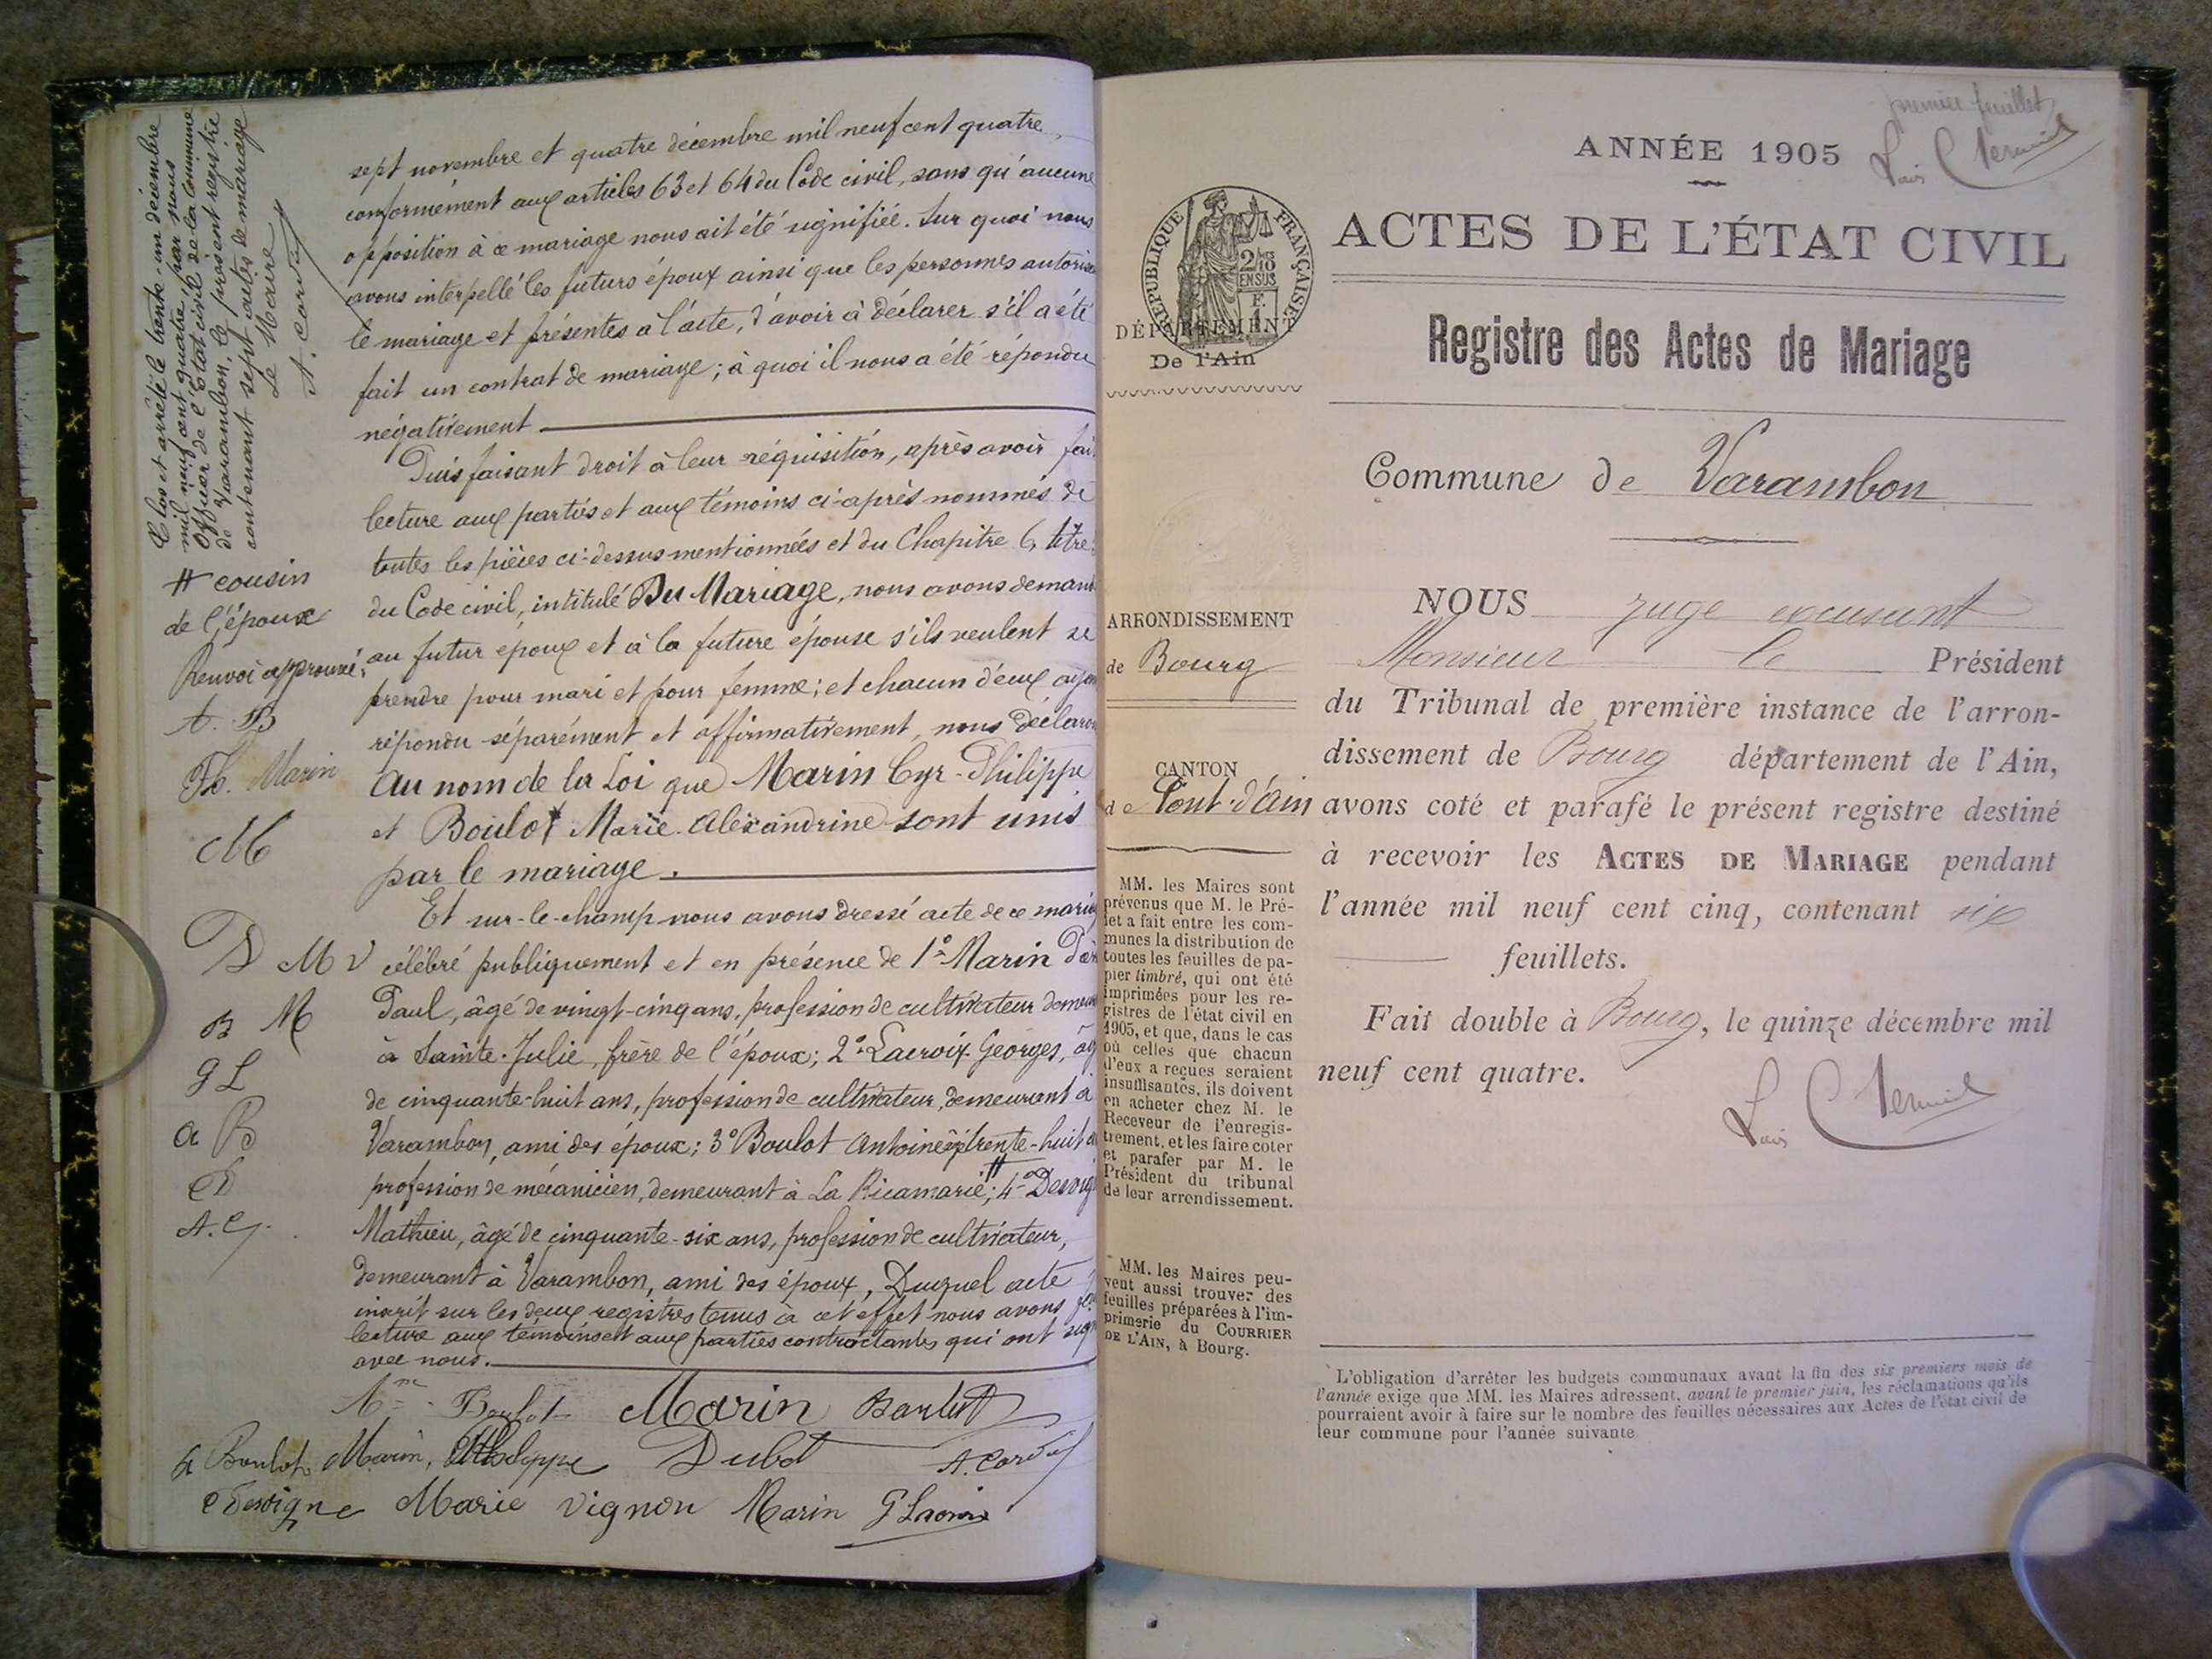 Clos et arrêté le trente-un décembre
mil neuf cent quatre, par nous
Officier de l'état civil de la commune
de Varambon, le présent registre
contenant sept actes de mariage
Le Maire
A. Corduf
sept novembre et quatre décembre mil neuf cent quatre,
conformément aux articles 63 et 64 du Code civil, sans qu'aucune
opposition à ce mariage nous ait été signifiée. Sur quoi nous
avons interpellé les futurs époux ainsi que les personnes autoris
le mariage et présentes à l'acte, d'avoir à déclarer s'il a été
fait un contrat de mariage; à quoi il nous a été répondu
négativement
Puis faisant droit à leur réquisition, après avoir fait
lecture aux parties et aux témoins ci-après nommés de
toutes les pièces ci-dessus mentionnées et du Chapitre 6, titre
du Code civil, intitulé Du Mariage, nous avons demand
au futur époux et à la future épouse s'ils veulent se
prendre pour mari et pour femme; et chacun d'eux ayan
répondu séparément et affirmativement, nous déclaron
Au nom de la Loi que Marin Cyr-Philippe
et Boulot Marie-Alexandrine sont unis
par le mariage.
Et sur-le-champ nous avons dressé acte de ce mariag
célébré publiquement et en présence de 1° Marin
Paul, âgé de vingt-cinq ans, profession de cultivateur demeur
à Sainte-Julie, frère de l'époux; 2° Lacroix Georges, âg
de cinquante-huit ans, profession de cultivateur, demeurant à
Varambon, ami des époux; 3° Boulot Antoine âgé trente-huit a
profession de mécanicien, demeurant à La Ricamarie #; 4° Desvig
Mathieu, âgé de cinquante-six ans, profession de cultivateur,
demeurant à Varambon, ami des époux, Duquel acte
inscrit sur les deux registres tenus à cet effet nous avons
lecture aux témoins et aux parties contractantes qui ont sig
avec nous.
# cousin
de l'époux
Renvoi approuvé.
A. B
Ph. Marin
M
D M V
B M
G L
A B
A. C.
Boulot Marin
Boulot Marin, Philippe Dubot
Desvigne Marie Vignon Marin G Lacroix
premier feuillet
ANNÉE 1905
ACTES DE L'ÉTAT CIVIL
RÉPUBLIQUE FRANÇAISE
2/10 EN SUS
F. 1
DÉPARTEMENT
De l'Ain
Registre des Actes de Mariage
Commune de Varambon
ARRONDISSEMENT
de Bourg
CANTON
de Pont-d'Ain
MM. les Maires sont
prévenus que M. le Pré-
fet a fait entre les com-
munes la distribution de
toutes les feuilles de pa-
pier timbré, qui ont été
imprimées pour les re-
gistres de l'état civil en
1905, et que, dans le cas
où celles que chacun
d'eux a reçues seraient
insuffisantes, ils doivent
en acheter chez M. le
Receveur de l'enregis-
trement, et les faire coter
et parafer par M. le
Président du tribunal
de leur arrondissement.
MM. les Maires peu-
vent aussi trouver des
feuilles préparées à l'im-
primerie du COURRIER
DE L'AIN, à Bourg.
NOUS juge excusant
Monsieur le Président
du Tribunal de première instance de l'arron-
dissement de Bourg département de l'Ain,
avons coté et parafé le présent registre destiné
à recevoir les ACTES DE MARIAGE pendant
l'année mil neuf cent cinq, contenant six
feuillets.
Fait double à Bourg, le quinze décembre mil
neuf cent quatre.
L'obligation d'arrêter les budgets communaux avant la fin des six premiers mois de
l'année exige que MM. les Maires adressent, avant le premier juin, les réclamations qu'ils
pourraient avoir à faire sur le nombre des feuilles nécessaires aux Actes de l'état civil de
leur commune pour l'année suivante